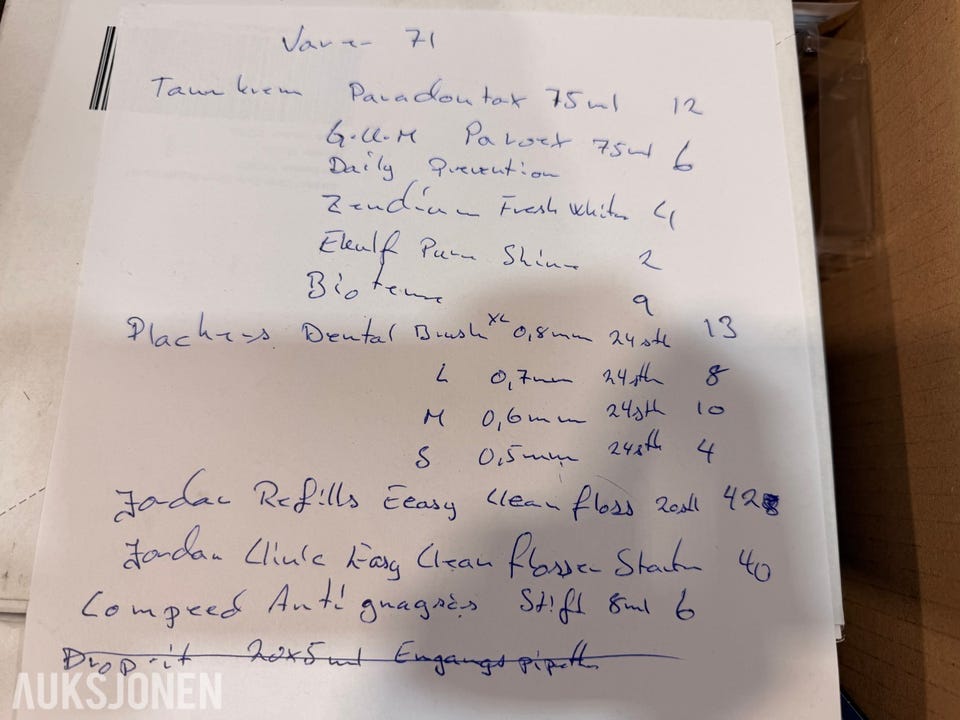 Varer 71
Tannkrem Paradontax 75ml 12
G.U.M Paroex 75ml 6
Daily Prevention
Zendium Fresh White 4
Ekulf Pure Shine 2
Biotene 9
Plackers Dental Brush XL 0,8mm 24stk 13
L 0,7mm 24stk 8
M 0,6mm 24stk 10
S 0,5mm 24stk 4
Jordan Refills Eeasy Clean floss 20stk 42
Jordan Clinic Easy Clean flosser Starter 40
Compeed Anti gnagsår Stift 8ml 6
Drop-it 20x5ml Engangspipetter
AUKSJONEN